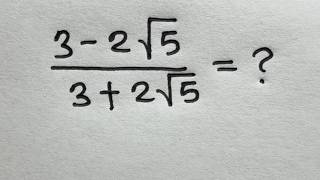 3 - 2√5
3 + 2√5 = ?